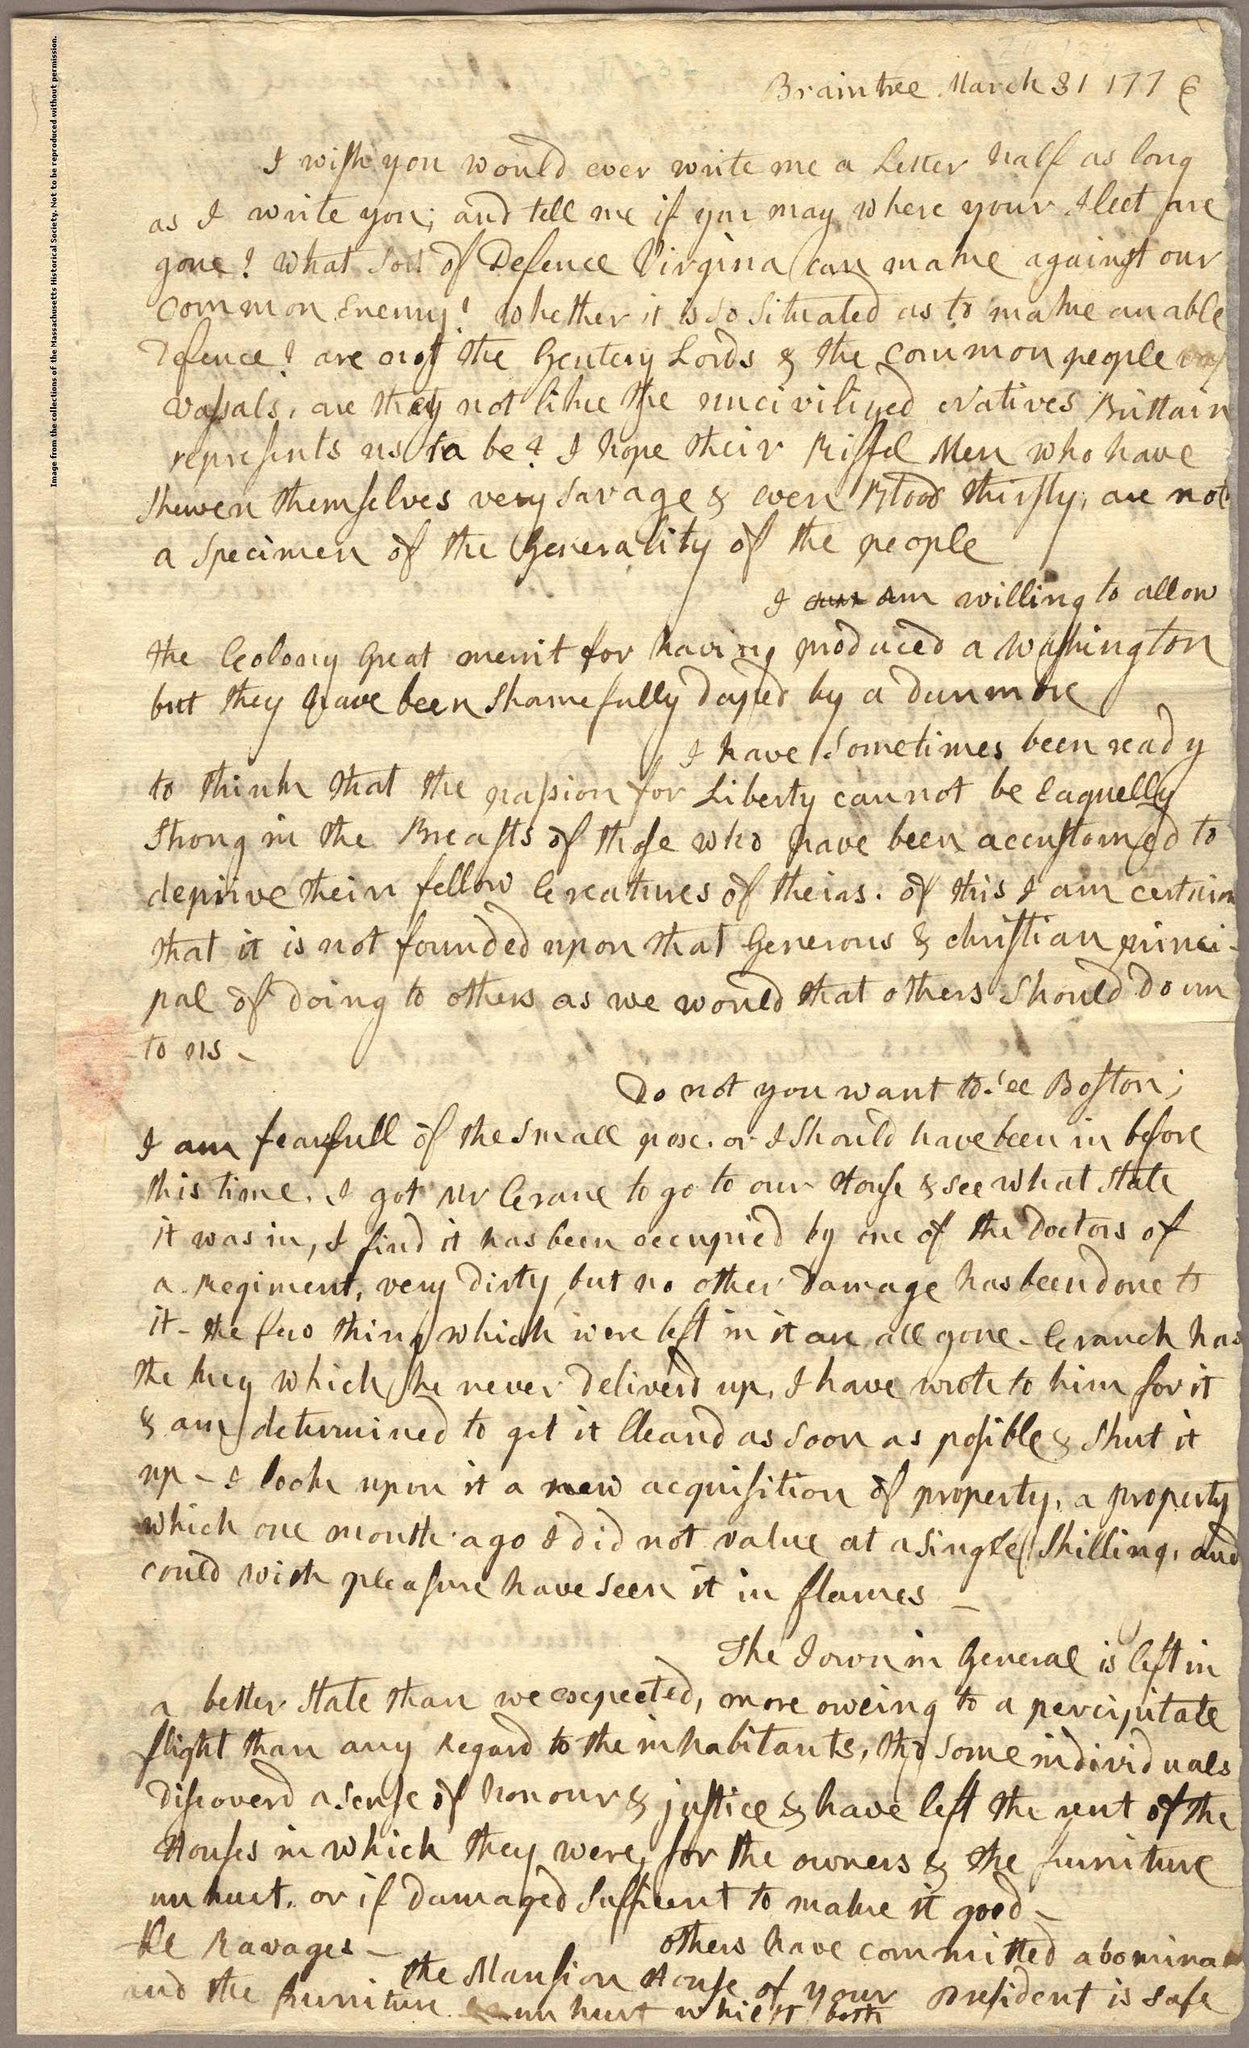 Image from the collections of the Massachusetts Historical Society. Not to be reproduced without permission.
Braintree March 31 1776
I wish you would ever write me a Letter half as long
as I write you; and tell me if you may where your Fleet are
gone? What sort of Defence Virginia can make against our
common Enemy? Whether it is so situated as to make an able
Defence? are not the Gentery Lords & the common people
vassals, are they not like the uncivilized Natives Brittain
represents us to be? I hope their Riffel Men who have
shewen themselves very savage & even Blood thirsty; are not
a specimen of the Generality of the people
I am willing to allow
the Colony great merrit for having produced a Washington
but they have been shamefully duped by a Dunmore
I have sometimes been ready
to think that the passion for Liberty cannot be Eaquelly
strong in the Breasts of those who have been accustomed to
deprive their fellow Creatures of theirs. of this I am certain
that it is not founded upon that Generous & christian princi-
pal of doing to others as we would that others should do un
to us -
Do not you want to see Boston;
I am fearfull of the small pox. or I should have been in before
this time. I got Mr Crane to go to our House & see what state
it was in, I find it has been occupied by one of the Doctors of
a Regiment, very dirty, but no other Damage has been done to
it - the few things which were left in it are all gone - Cranch has
the key which he never deliverd up, I have wrote to him for it
& am determined to get it Cleand as soon as posible & shut it
up - I look upon it a new acquisition of property, a property
which one month ago I did not value at a single Shilling, and
could with pleasure have seen it in flames -
The Town in General is left in
a better state than we expected, more oweing to a percipitate
flight than any Regard to the inhabitants, tho some individuals
discoverd a sense of honour & justice & have left the rent of the
Houses in which they were, for the owners & the furniture
unhurt, or if damaged sufficent to make it good -
others have committed abomina
ble Ravages -
the Mansion House of your President is safe
and the furniture unhurt whilst both